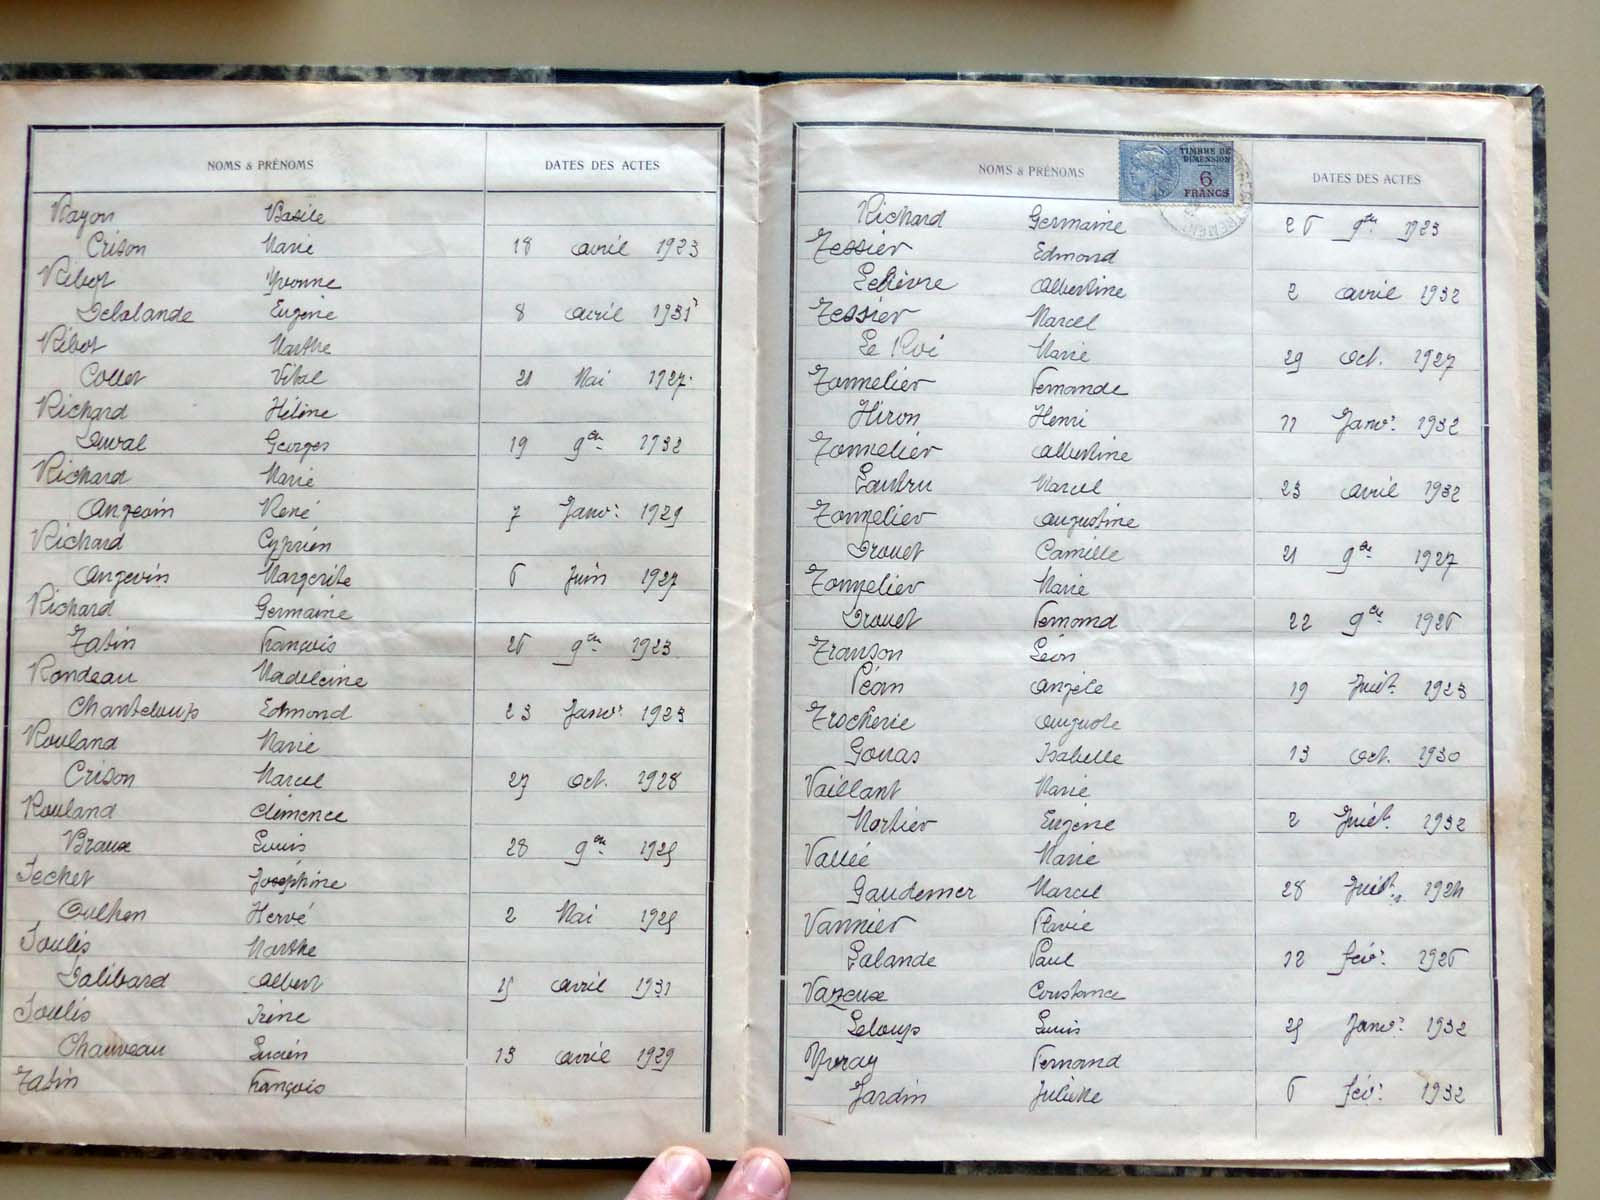 NOMS & PRÉNOMS DATES DES ACTES
Rayon Basile
Crison Marie 18 avril 1923
Ribot Yvonne
Delalande Eugène 8 avril 1931
Ribot Marthe
Collet Vital 21 Mai 1927.
Richard Hélène
Duval Georges 19 9bre 1932
Richard Marie
Angevin René 7 Janvr 1929
Richard Cyprien
Angevin Margerite 6 Juin 1927
Richard Germaine
Tatin François 26 9bre 1923
Rondeau Madeleine
Chanteloup Edmond 23 Janvr 1923
Rouland Marie
Crison Marcel 27 Oct. 1928
Rouland Clémence
Braux Louis 28 9bre 1925
Sechet Joséphine
Oulhen Hervé 2 Mai 1925
Soulis Marthe
Galibard Albert 15 avril 1931
Soulis Irène
Chauveau Lucien 13 avril 1929
Tatin François
NOMS & PRÉNOMS DATES DES ACTES
TIMBRE DE
DIMENSION
6
FRANCS
Richard Germaine 26 9bre 1923
Tessier Edmond
Lelièvre Albertine 2 avril 1932
Tessier Marcel
Le Roi Marie 29 Oct. 1927
Tonnelier Fernande
Hiron Henri 11 Janvr 1932
Tonnelier Albertine
Marcel 23 avril 1932
Tonnelier Augustine
Drouet Camille 21 9bre 1927
Tonnelier Marie
Drouet Fernand 22 9bre 1926
Transon Léon
Péan Angèle 19 Juillt 1923
Trocherie Auguste
Gouas Isabelle 13 Oct. 1930
Vaillant Marie
Mortier Eugène 2 Juillt 1932
Vallée Marie
Gaudemer Marcel 28 Juillt 1924
Vannier Flavie
Lalande Paul 12 févr 1926
Vazeux Constance
Leloup Louis 25 Janvr 1932
Yvray Fernand
Jardin Juliette 6 févr 1932